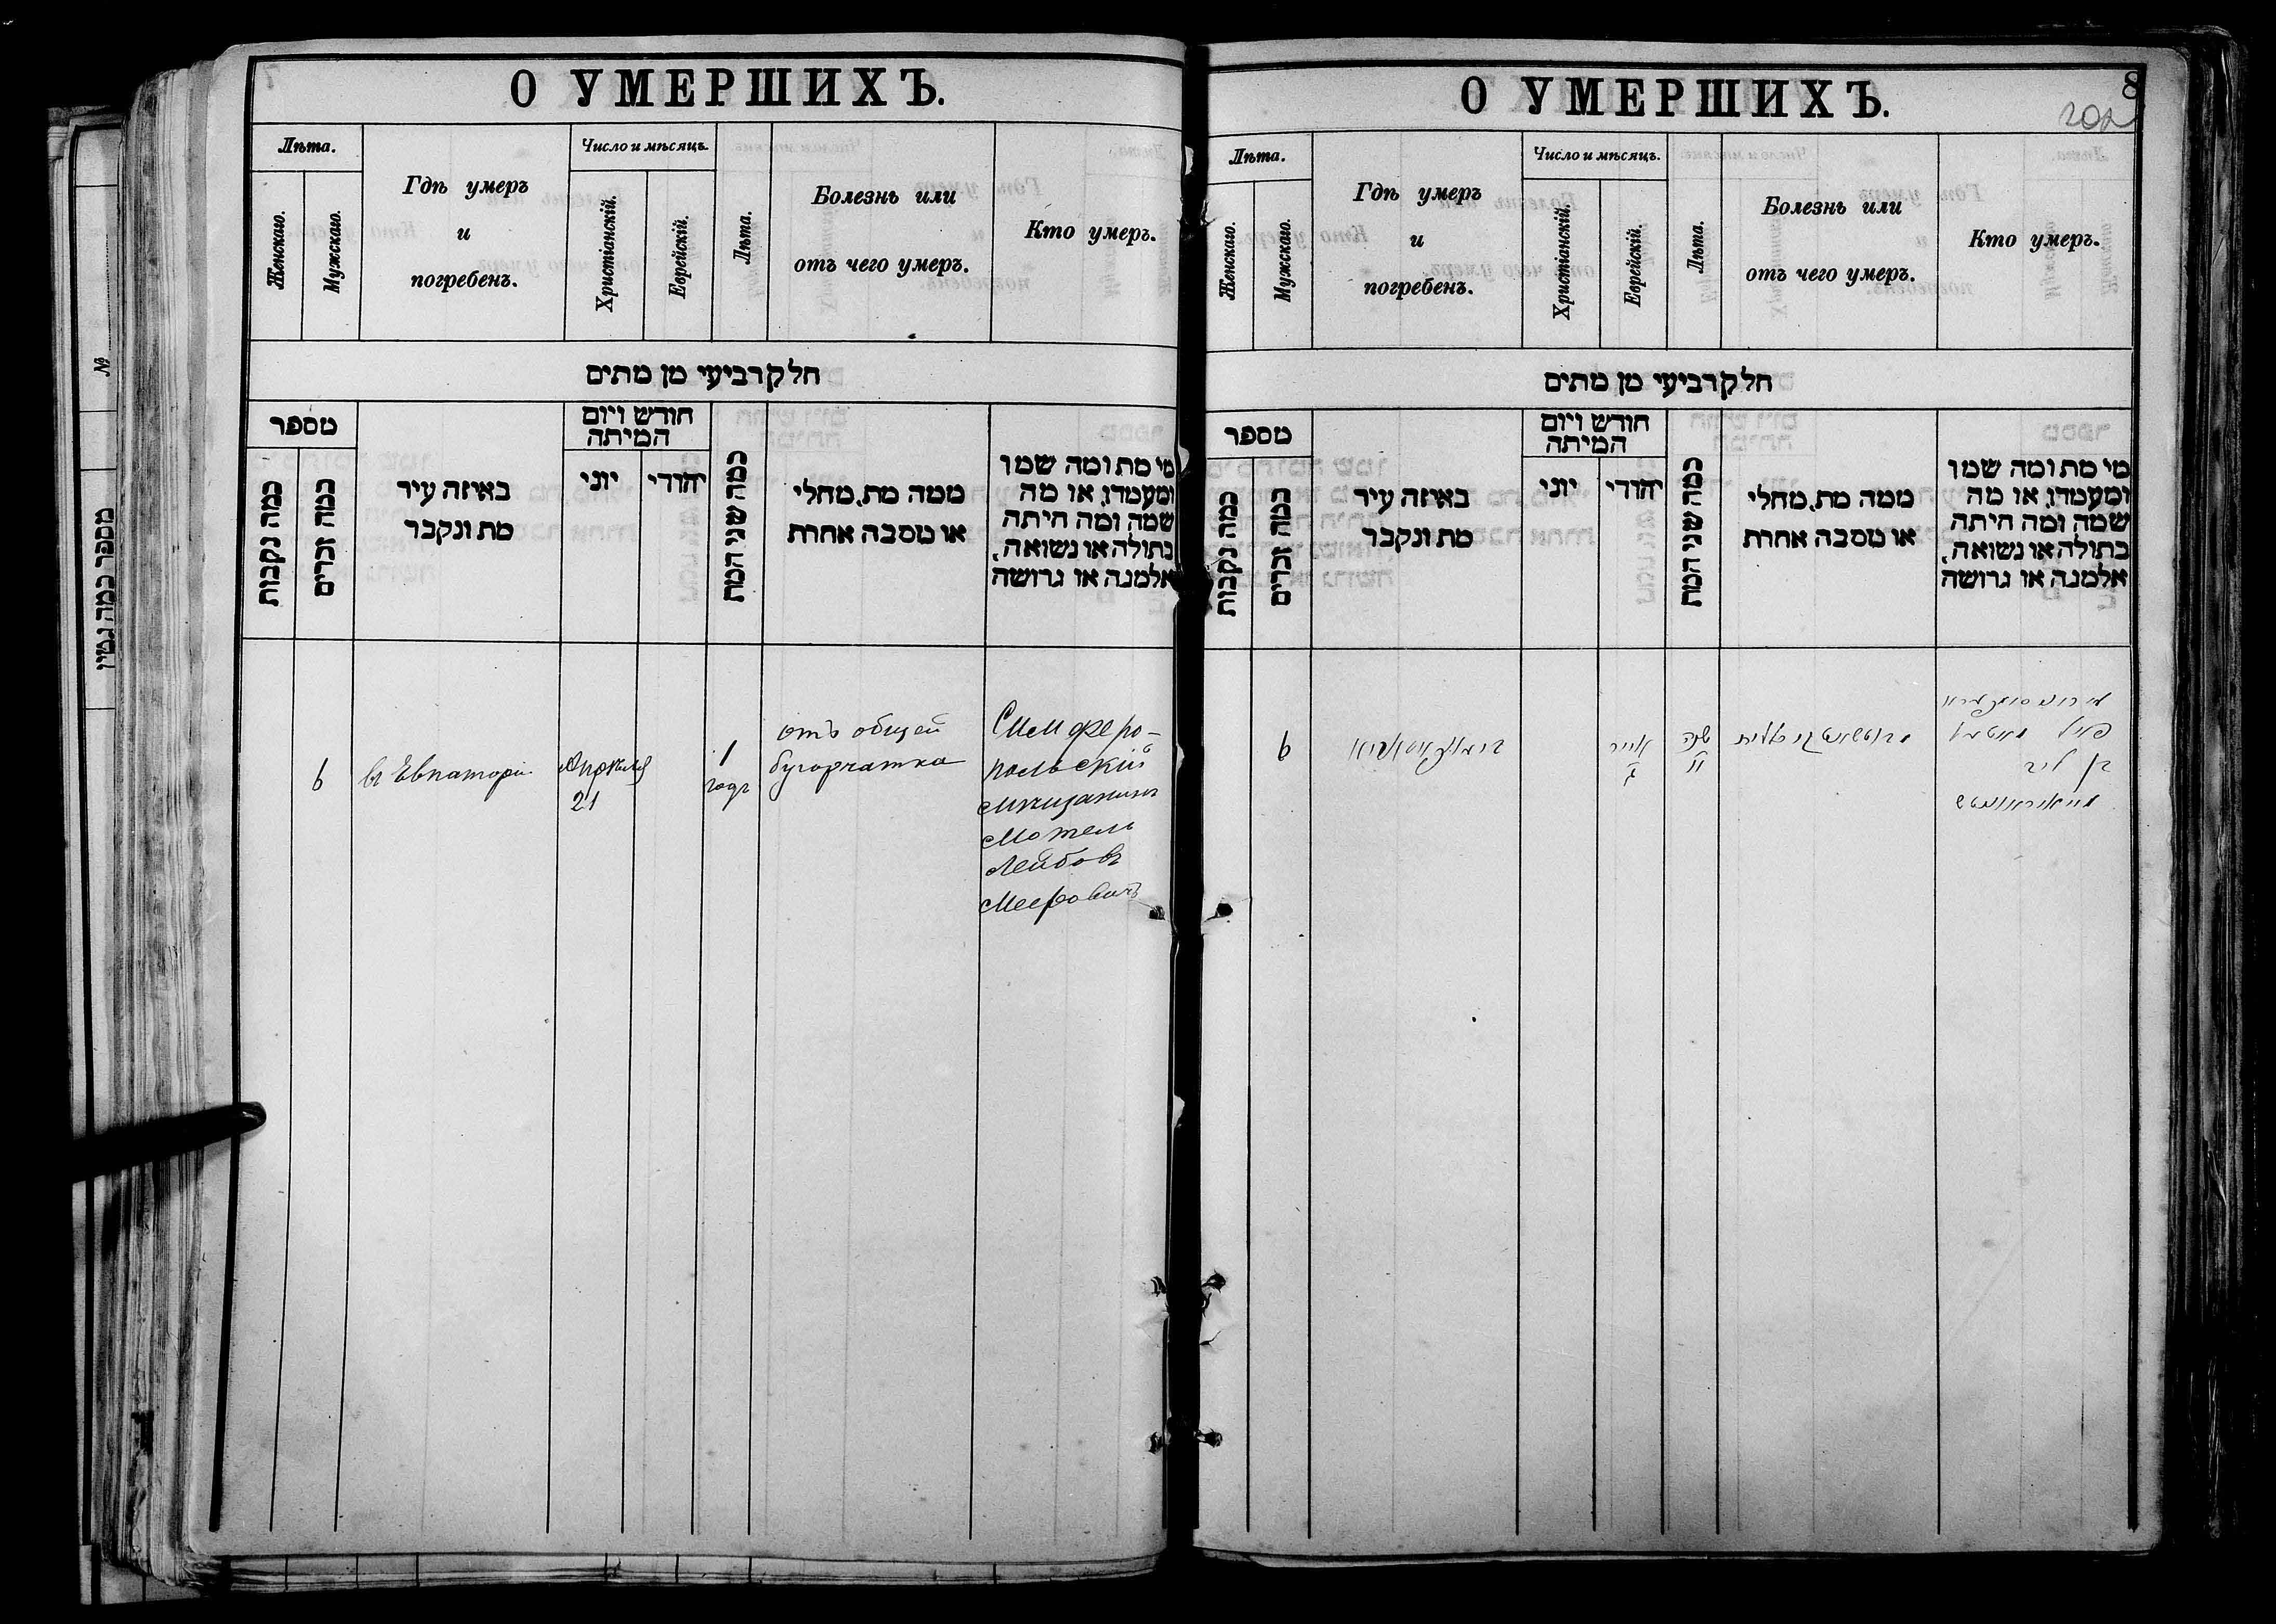 О УМЕРШИХЪ.
Лѣта.
Женскаго.
Мужскаго.
Гдѣ умеръ
и
погребенъ.
Число и мѣсяцъ.
Христіанскій.
Еврейскій.
Лѣта.
Болезнь или
отъ чего умеръ.
Кто умеръ.
חלק רביעי מן מתים
מספר
כמה נקבות
כמה זכרים
באיזה עיר
מת ונקבר
חודש ויום
המיתה
יוני
יהודי
כמה שני המת
ממה מת, מחלי
או מסבה אחרת
מי מת ומה שמו
ומעמדו, או מה
שמה ומה היתה
בתולה או נשואה,
אלמנה או גרושה
6
въ Евпаторіи
Апрѣля
21
1
годъ
отъ общей
бугорчатка
Симферо-
польскій
мѣщанинъ
Мотель
Лейбовъ
Мееровичъ
№
מספר כמה גטין
О УМЕРШИХЪ.
8
Лѣта.
Женскаго.
Мужскаго.
Гдѣ умеръ
и
погребенъ.
Число и мѣсяцъ.
Христіанскій.
Еврейскій.
Лѣта.
Болезнь или
отъ чего умеръ.
Кто умеръ.
חלק רביעי מן מתים
מספר
כמה נקבות
כמה זכרים
באיזה עיר
מת ונקבר
חודש ויום
המיתה
יוני
יהודי
כמה שני המת
ממה מת, מחלי
או מסבה אחרת
מי מת ומה שמו
ומעמדו, או מה
שמה ומה היתה
בתולה או נשואה,
אלמנה או גרושה
6
אייר
שנה
בן ליב